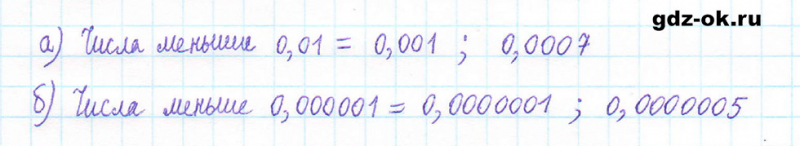 gdz-ok.ru
а) Числа меньше 0,01 = 0,001 ; 0,0007
б) Числа меньше 0,000001 = 0,0000001 ; 0,0000005